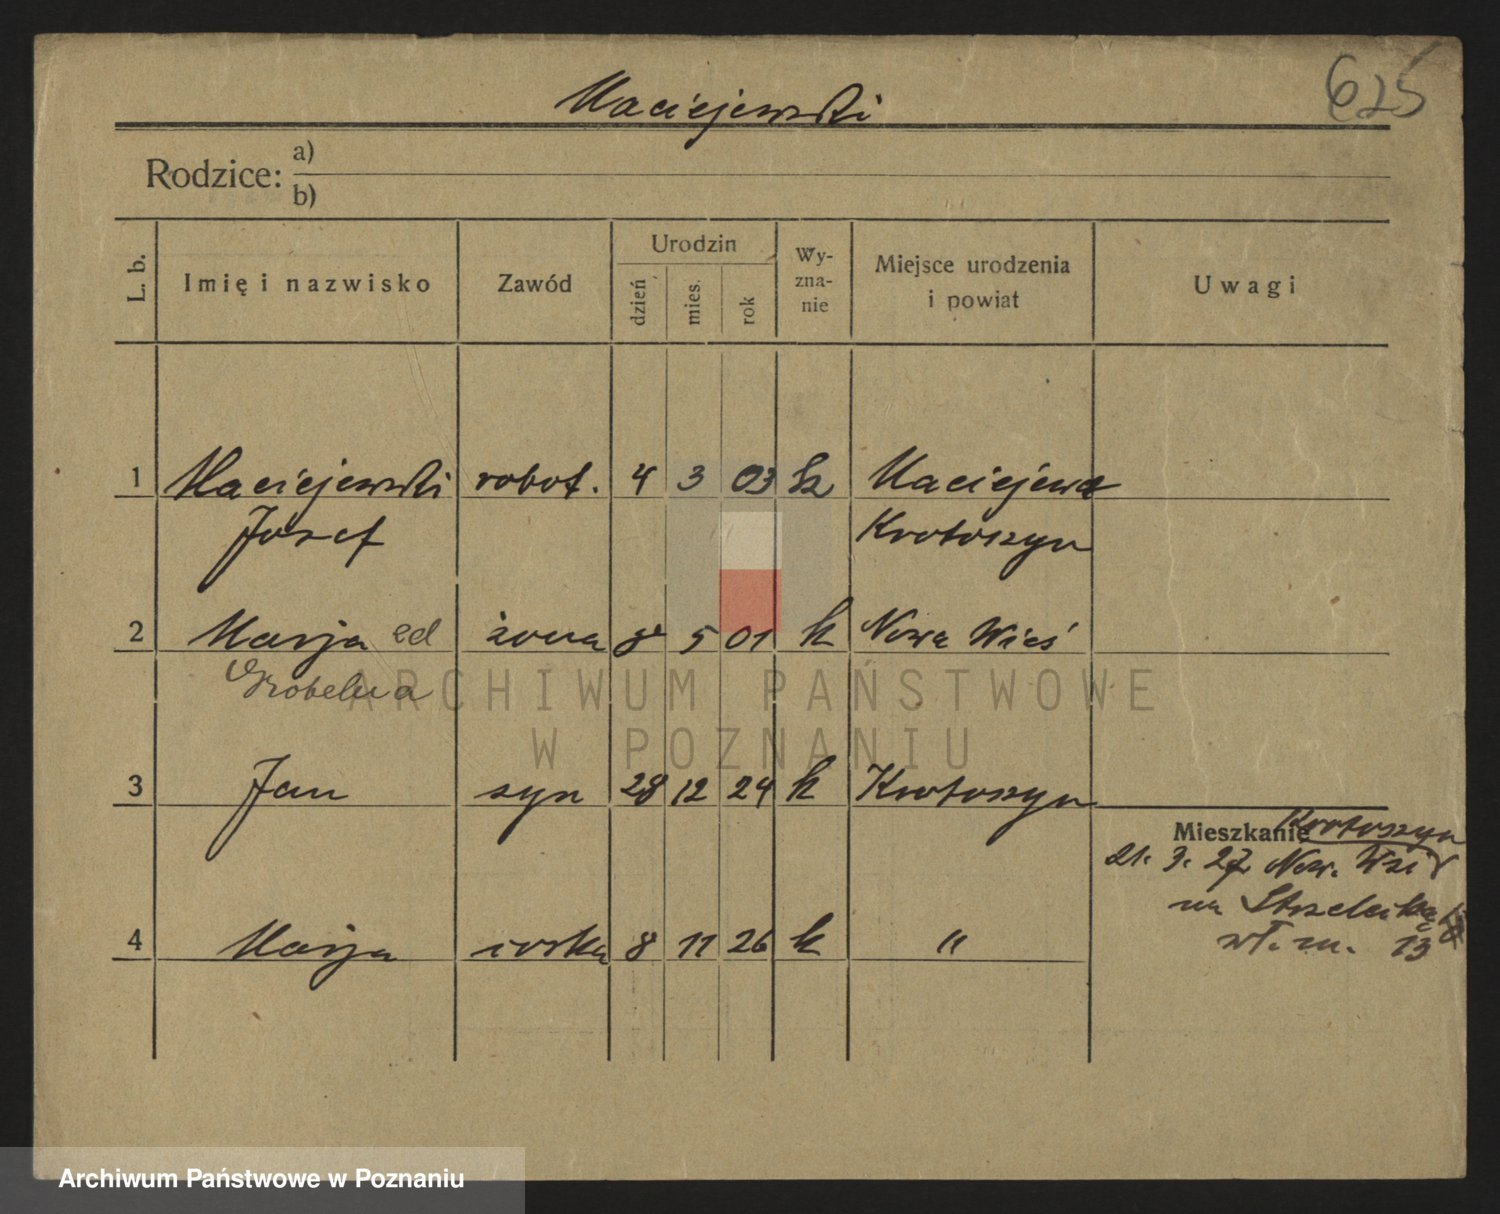 Maciejewski
625
Rodzice: a)
b)
L. b. Imię i nazwisko Zawód Urodzin dzień mies. rok Wy-zna-nie Miejsce urodzenia i powiat Uwagi
1 Maciejewski robot. 4 3 03 Maciejew
Józef Krotoszyn
2 Marja żona 8 5 01 k Nowa Wieś
Grobelna
3 Jan syn 28 12 24 k Krotoszyn
Mieszkanie Krotoszyn
21. 3. 27 Now. Wsi
na Strzelecką
4 Marja córka 8 11 26 k "
wł. m. 13
ARCHIWUM PAŃSTWOWE
W POZNANIU
Archiwum Państwowe w Poznaniu